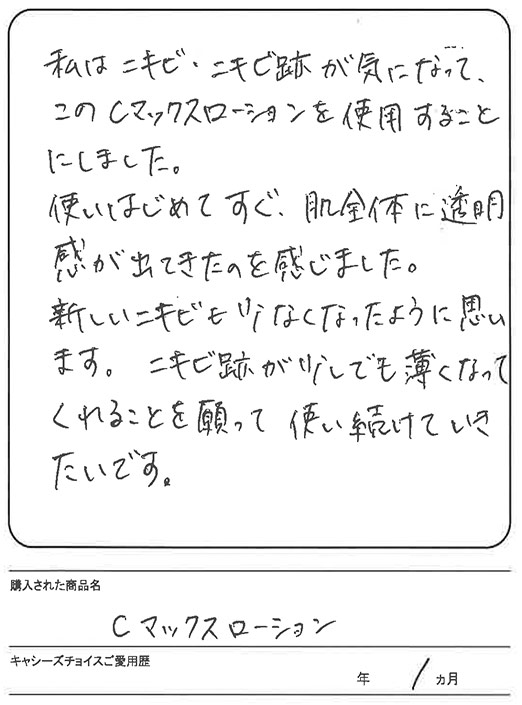 私はニキビ・ニキビ跡が気になって、
このCマックスローションを使用すること
にしました。
使いはじめてすぐ、肌全体に透明
感が出てきたのを感じました。
新しいニキビも少なくなったように思い
ます。 ニキビ跡が少しでも薄くなって
くれることを願って 使い続けていき
たいです。
購入された商品名
Cマックスローション
キャシーズチョイスご愛用歴
年 1ヵ月